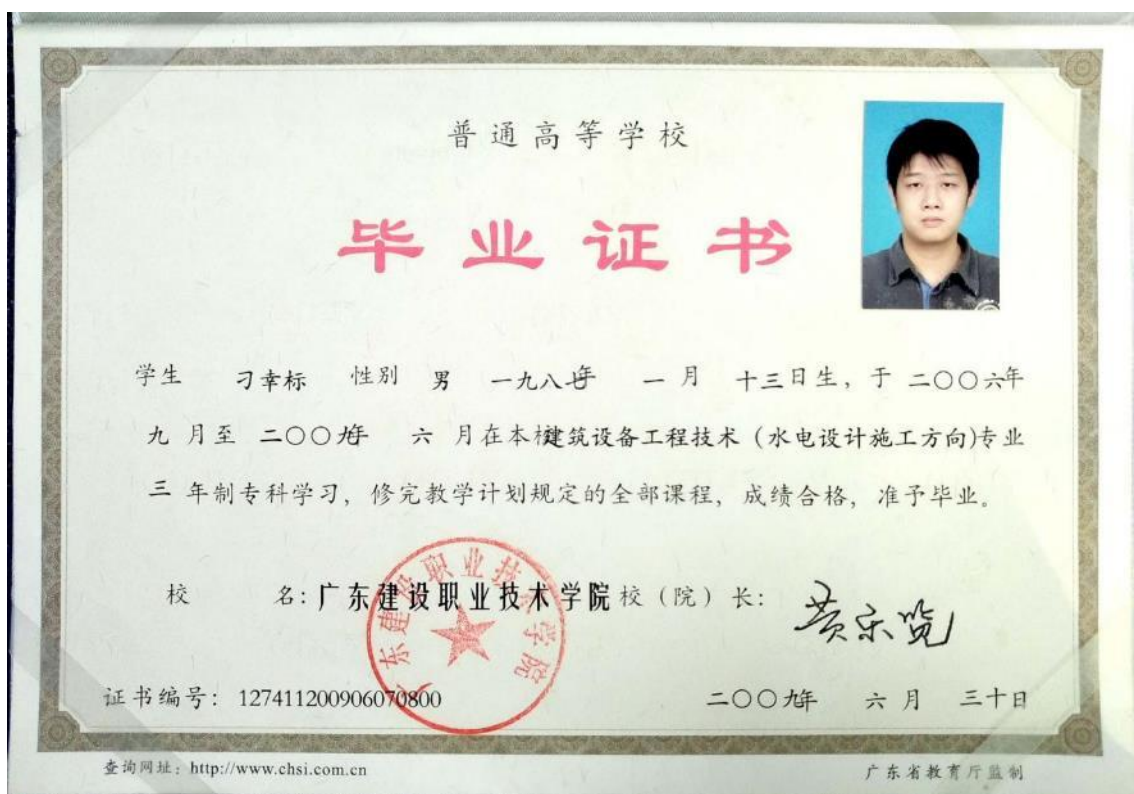 普通高等学校
毕业证书
学生 刁幸标 性别 男 一九八七年 一 月 十三日生，于 二〇〇六年
九 月至 二〇〇九年 六 月在本校建筑设备工程技术（水电设计施工方向)专业
三 年制专科学习，修完教学计划规定的全部课程，成绩合格，准予毕业。
校 名：广东建设职业技术学院 校（院）长：
广东建设职业技术学院
证书编号： 127411200906070800 二〇〇九年 六 月 三十日
查询网址：http://www.chsi.com.cn 广东省教育厅监制